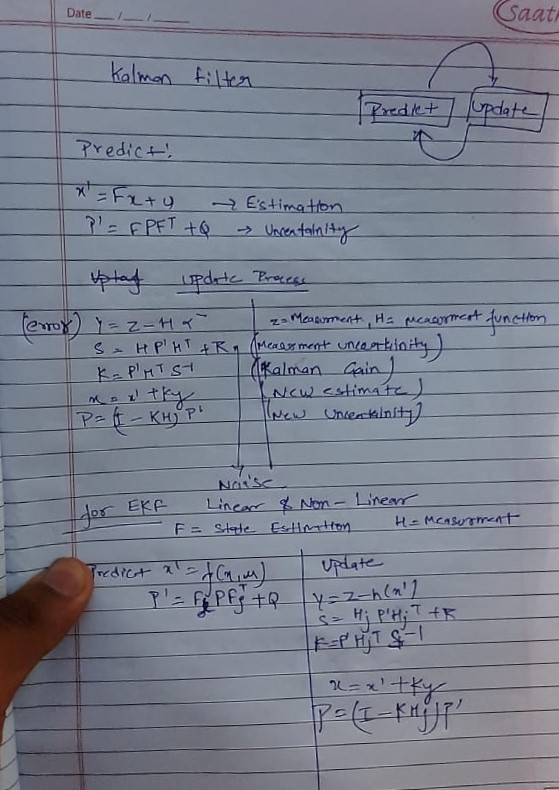 Date __/__/__
Saat
Kalman filter
Predict Update
Predict:
x' = Fx + u → Estimation
P' = FPFᵀ + Q → Uncentainity
Update Process
(error) Y = Z - H x⁻ z = Measurment, H = measurment function
S = H P' Hᵀ + R (Measurment uncertainity)
K = P' Hᵀ S⁻¹ (Kalman Gain)
x = x' + Ky (New estimate)
P = (I - KH) P' (New Uncertainity)
Noise
for EKF Linear & Non - Linear
F = State Estimation H = Measurment
Predict x' = f(x, u)
P' = Fj P Fjᵀ + Q
Update
Y = Z - h(x')
S = Hj P' Hjᵀ + R
K = P' Hjᵀ S⁻¹
x = x' + Ky
P = (I - KHj) P'